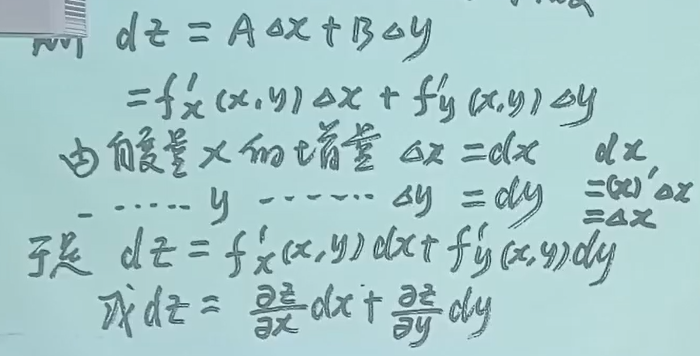 则 dz = A Δx + B Δy
= f'x (x, y) Δx + f'y (x, y) Δy
由自变量 x 的增量 Δx = dx dx
- ..... y ------- Δy = dy = (x)' Δx
= Δx
于是 dz = f'x (x, y) dx + f'y (x, y) dy
或 dz = ∂z/∂x dx + ∂z/∂y dy